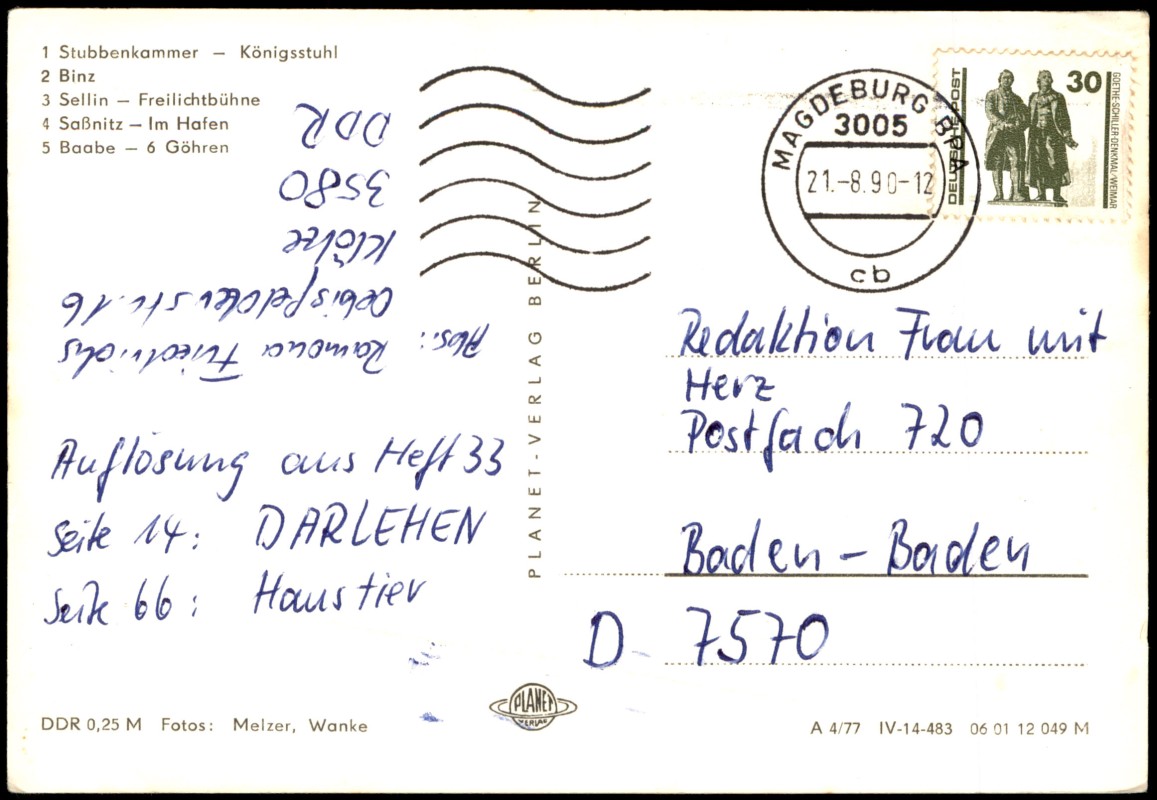 1 Stubbenkammer – Königsstuhl
2 Binz
3 Sellin – Freilichtbühne
4 Saßnitz – Im Hafen
5 Baabe – 6 Göhren
MAGDEBURG BPA
3005
21.-8.90-12
cb
DEUTSCHE POST
30
GOETHE-SCHILLER-DENKMAL/WEIMAR
Abs.: Ramona Friedrichs
Oebisfelder Str. 16
Klötze
3580
DDR
Auflösung aus Heft 33
Seite 14: DARLEHEN
Seite 66: Haustier
PLANET-VERLAG BERLIN
Redaktion Frau mit
Herz
Postfach 720
Baden – Baden
D- 7570
PLANET
VERLAG
DDR 0,25 M Fotos: Melzer, Wanke
A 4/77 IV-14-483 06 01 12 049 M